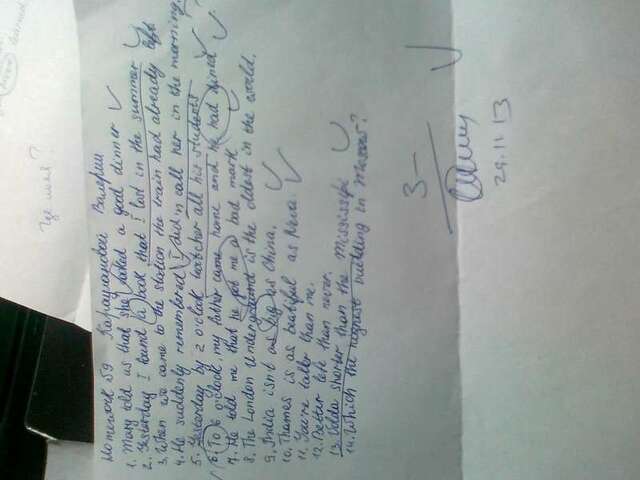 Homework 59
1. Mary told us that she cooked a good dinner
2. Yesterday I found a book that I lost in the summer
3. When we came to the station the train had already left
4. He suddenly remembered I did n call her in the morning
5. Yesterday by 2 o'clock teacher all his students
6. To 6 o'clock, my father came home and he had dined
7. He told me that he got me a bad mark
8. The London Underground is the oldest in the world.
9. India isn't as big as China.
10. Thames is as beautiful as Neva.
11. You're taller than me.
12. Better late than never.
13. Volga shorter than the Mississipi
14. Which the highest building in Moscow?
3-
29.11 13
Где имя?